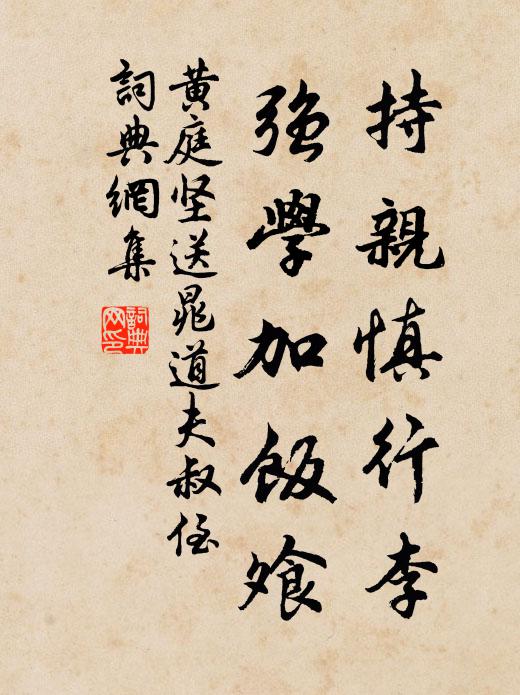 持親慎行李
強學加飯飧
黄庭坚送晁道夫叔侄
詞典網集
詞典網印